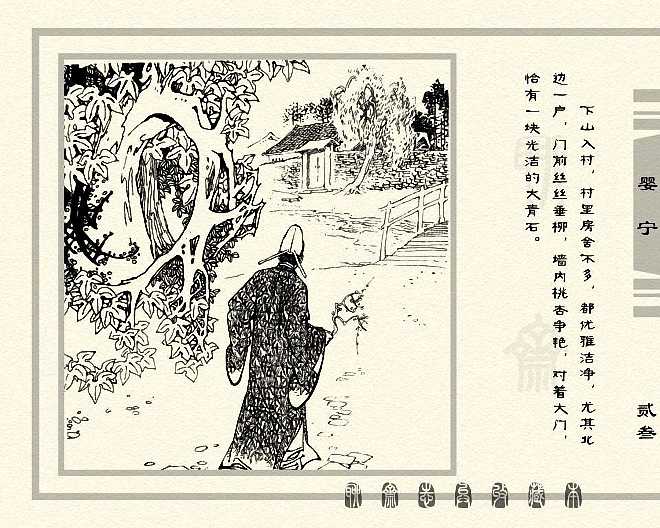 下山入村，村里房舍不多，都优雅洁净，尤其北
边一户，门前丝丝垂柳，墙内桃杏争艳，对着大门，
恰有一块光洁的大青石。
婴宁
贰叁